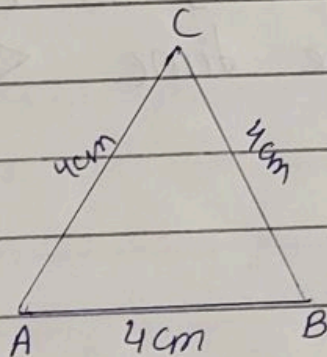 C
4cm 4cm
A 4cm B